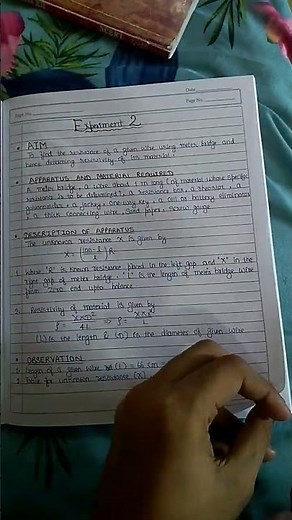 Date
Page No.
Experiment 2
AIM
To find the resistance of a given wire using metre bridge and
hence determine resistivity of its material.
APPARATUS AND MATERIAL REQUIRED
A meter bridge, a wire about 1 m long (of material whose specific
resistance is to be determined), a resistance box, a rheostat, a
galvanometer, a jockey, one-way key, a cell or battery eliminator
, a thick connecting wire, sand paper, screw gauge.
DESCRIPTION OF APPARATUS
The unknown resistance X is given by
X = (100-l / l) R
where 'R' is known resistance placed in the left gap and 'X' in the
right gap of meter bridge. 'l' is the length of meter bridge wire
from zero end upto balance
Resistivity of material is given by
ρ = XπD² / 4L ⇒ ρ =
(L) is the length & (D) is the diameter of given wire
OBSERVATION
length of a given wire (L) = cm
Table for unknown resistance (X)